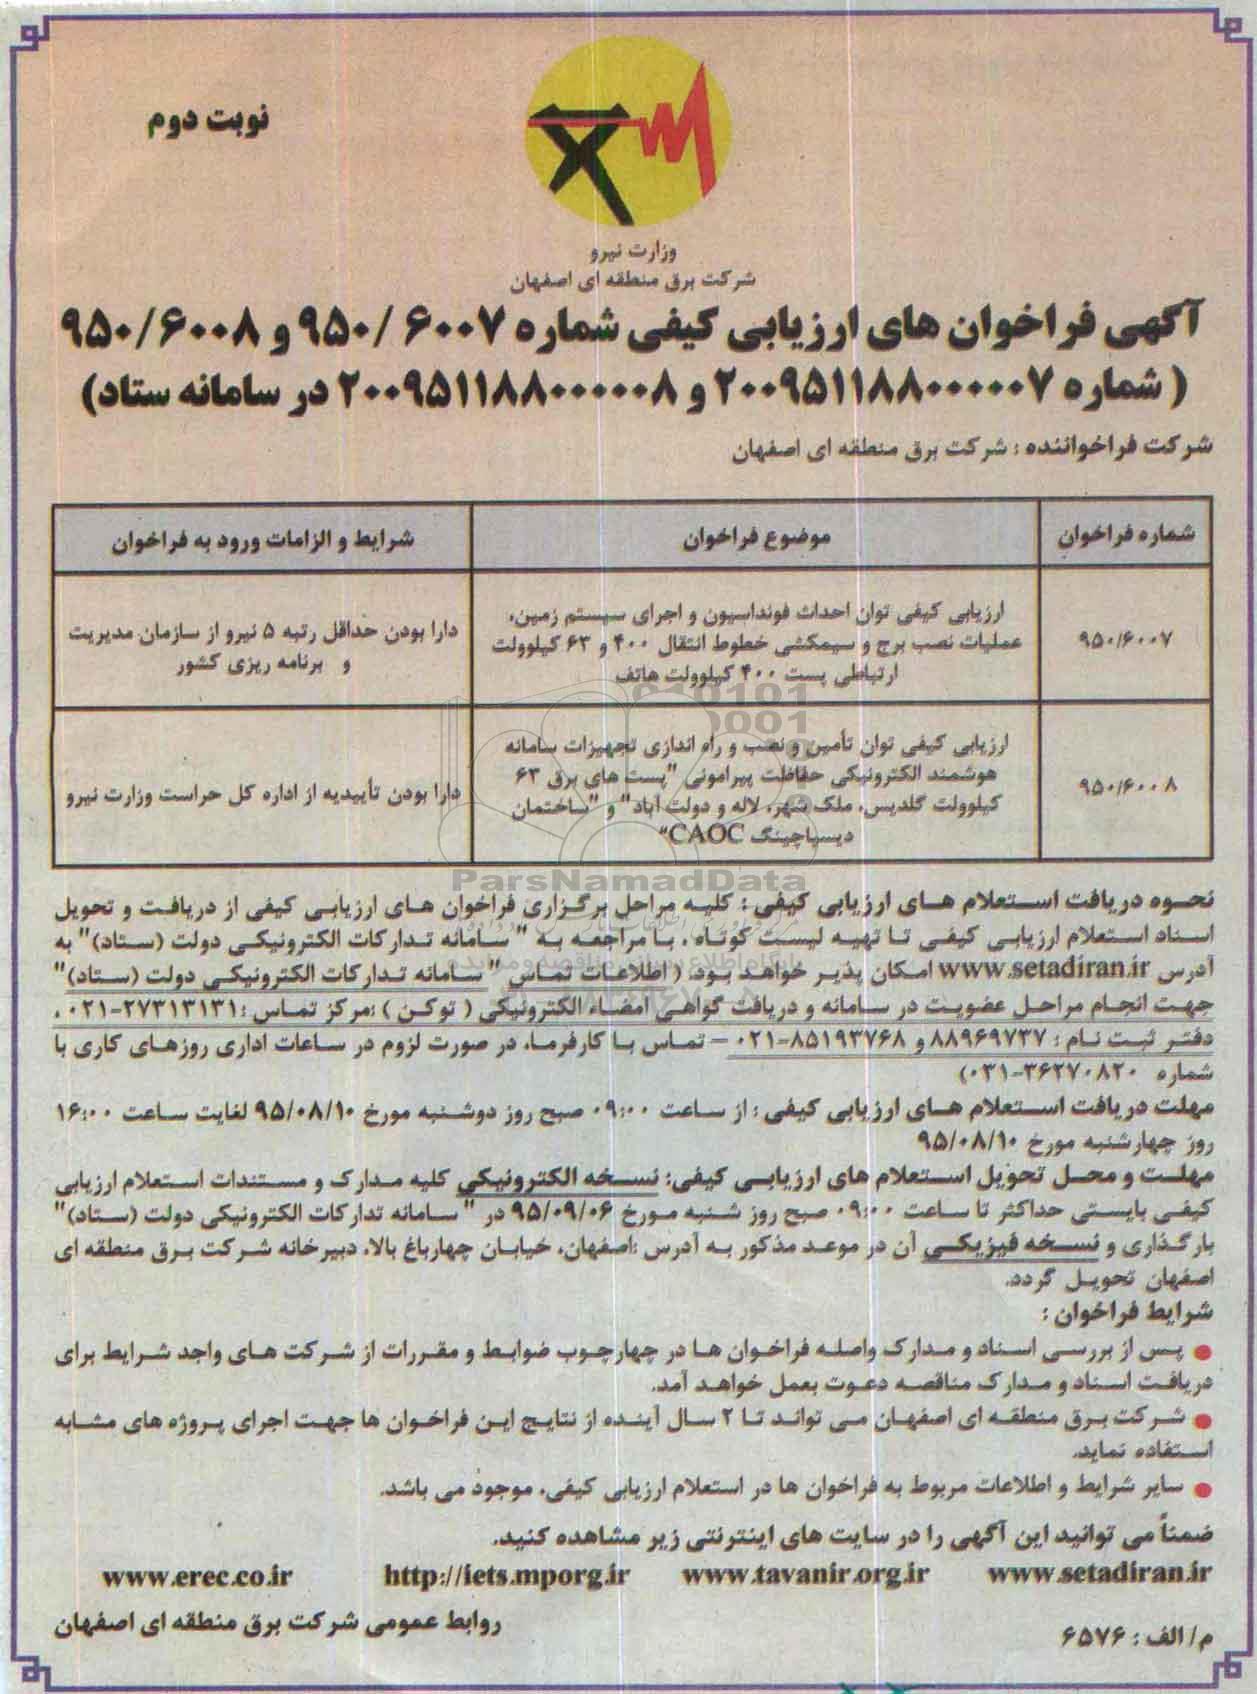 نوبت دوم
وزارت نیرو
شرکت برق منطقه ای اصفهان
آگهی فراخوان های ارزیابی کیفی شماره ۹۵۰/۶۰۰۷ و ۹۵۰/۶۰۰۸
( شماره ۲۰۰۹۵۱۱۸۸۰۰۰۰۰۷ و ۲۰۰۹۵۱۱۸۸۰۰۰۰۰۸ در سامانه ستاد)
شرکت فراخواننده : شرکت برق منطقه ای اصفهان
شماره فراخوان
موضوع فراخوان
شرایط و الزامات ورود به فراخوان
۹۵۰/۶۰۰۷
ارزیابی کیفی توان احداث فونداسیون و اجرای سیستم زمین،
عملیات نصب برج و سیمکشی خطوط انتقال ۴۰۰ و ۶۳ کیلوولت
ارتباطی پست ۴۰۰ کیلوولت هاتف
دارا بودن حداقل رتبه ۵ نیرو از سازمان مدیریت
و برنامه ریزی کشور
۹۵۰/۶۰۰۸
ارزیابی کیفی توان تأمین و نصب و راه اندازی تجهیزات سامانه
هوشمند الکترونیکی حفاظت پیرامونی "پست های برق ۶۳
کیلوولت گلدیس، ملک شهر، لاله و دولت آباد" و "ساختمان
دیسپاچینگ CAOC"
دارا بودن تأییدیه از اداره کل حراست وزارت نیرو
ParsNamadData
نحوه دریافت استعلام های ارزیابی کیفی : کلیه مراحل برگزاری فراخوان های ارزیابی کیفی از دریافت و تحویل
اسناد استعلام ارزیابی کیفی تا تهیه لیست کوتاه ، با مراجعه به " سامانه تدارکات الکترونیکی دولت (ستاد)" به
آدرس www.setadiran.ir امکان پذیر خواهد بود. ( اطلاعات تماس "سامانه تدارکات الکترونیکی دولت (ستاد)"
جهت انجام مراحل عضویت در سامانه و دریافت گواهی امضاء الکترونیکی ( توکن ) :مرکز تماس :۲۷۳۱۳۱۳۱-۰۲۱ ،
دفتر ثبت نام : ۸۸۹۶۹۷۳۷ و ۸۵۱۹۳۷۶۸-۰۲۱ – تماس با کارفرما، در صورت لزوم در ساعات اداری روزهای کاری با
شماره ۳۶۲۷۰۸۲۰-۰۳۱)
مهلت دریافت استعلام های ارزیابی کیفی : از ساعت ۰۹:۰۰ صبح روز دوشنبه مورخ ۹۵/۰۸/۱۰ لغایت ساعت ۱۶:۰۰
روز چهارشنبه مورخ ۹۵/۰۸/۱۰
مهلت و محل تحویل استعلام های ارزیابی کیفی: نسخه الکترونیکی کلیه مدارک و مستندات استعلام ارزیابی
کیفی بایستی حداکثر تا ساعت ۰۹:۰۰ صبح روز شنبه مورخ ۹۵/۰۹/۰۶ در " سامانه تدارکات الکترونیکی دولت (ستاد)"
بارگذاری و نسخه فیزیکی آن در موعد مذکور به آدرس :اصفهان، خیابان چهارباغ بالا، دبیرخانه شرکت برق منطقه ای
اصفهان تحویل گردد.
شرایط فراخوان :
● پس از بررسی اسناد و مدارک واصله فراخوان ها در چهارچوب ضوابط و مقررات از شرکت های واجد شرایط برای
دریافت اسناد و مدارک مناقصه دعوت بعمل خواهد آمد.
● شرکت برق منطقه ای اصفهان می تواند تا ۲ سال آینده از نتایج این فراخوان ها جهت اجرای پروژه های مشابه
استفاده نماید.
● سایر شرایط و اطلاعات مربوط به فراخوان ها در استعلام ارزیابی کیفی، موجود می باشد.
ضمناً می توانید این آگهی را در سایت های اینترنتی زیر مشاهده کنید.
www.setadiran.ir www.tavanir.org.ir http://iets.mporg.ir www.erec.co.ir
م/ الف : ۶۵۷۶
روابط عمومی شرکت برق منطقه ای اصفهان